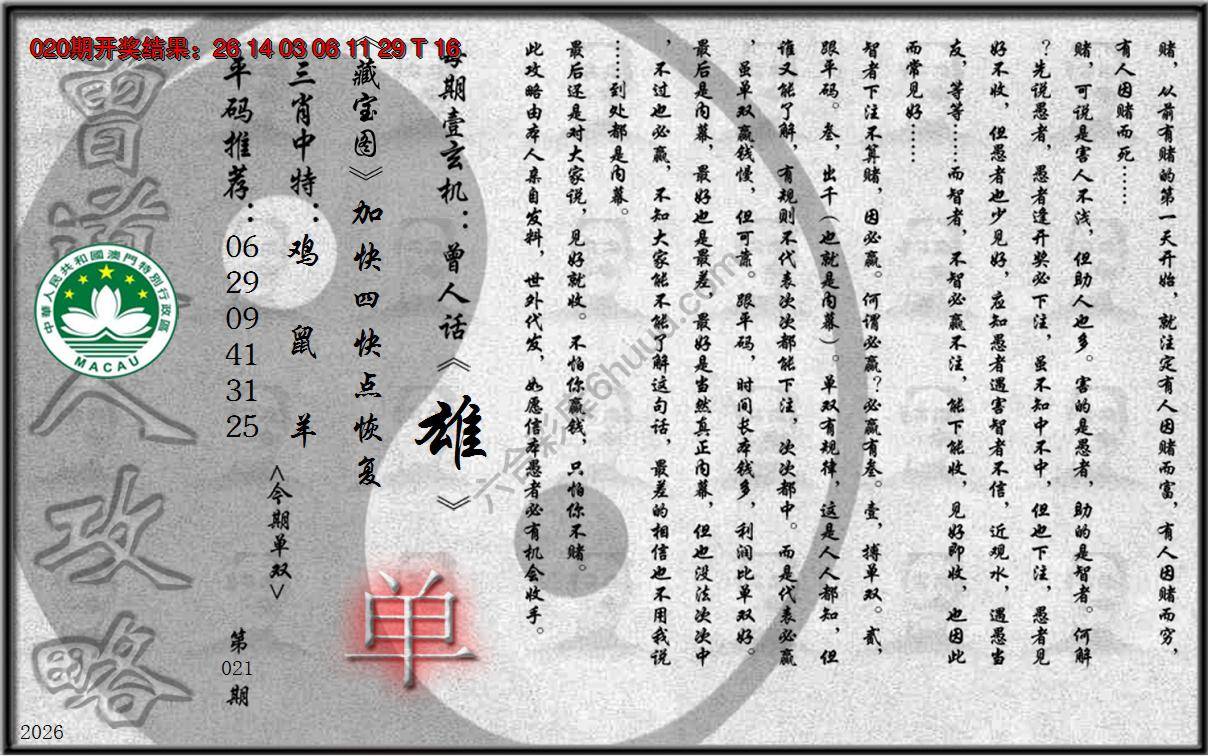 020期开奖结果：26 14 03 06 11 29 T 16
赌，从前有赌的第一天开始，就注定有人因赌而富，有人因赌而穷，
有人因赌而死……
赌，可说是害人不浅，但助人也多。害的是愚者，助的是智者。何解
？先说愚者，愚者逢开奖必下注，虽不知中不中，但也下注，愚者见
好不收，但愚者也少见好，应知愚者遇害智者不信，近观水，遇愚当
友，等等……而智者，不智必赢不注，能下能收，见好即收，也因此
而常见好……
智者下注不算赌，因必赢。何谓必赢？必赢有叁。壹，搏单双。贰，
跟平码。叁，出千（也就是内幕）。单双有规律，这是人人都知，但
谁又能了解，有规则不代表次次都能下注，次次都中。而是代表必赢
，虽单双赢钱慢，但可靠。跟平码，时间长本钱多，利润比单双好。
最后是内幕，最好也是最差，最好是当然真正内幕，但也没法次次中
，不过也必赢，不知大家能不能了解这句话，最差的相信也不用我说
……到处都是内幕。
最后还是对大家说，见好就收。不怕你赢钱，只怕你不赌。
此攻略由本人亲自发料，世外代发，如愿信本愚者必有机会收手。
每期壹玄机：曾人话《雄》
《藏宝图》加快四快点恢复
三肖中特：鸡鼠羊
平码推荐：06 29 09 41 31 25
<今期单双>
单
第021期
曾道人攻略
中華人民共和國澳門特別行政區
MACAU
六合彩库6huuu.com
2026